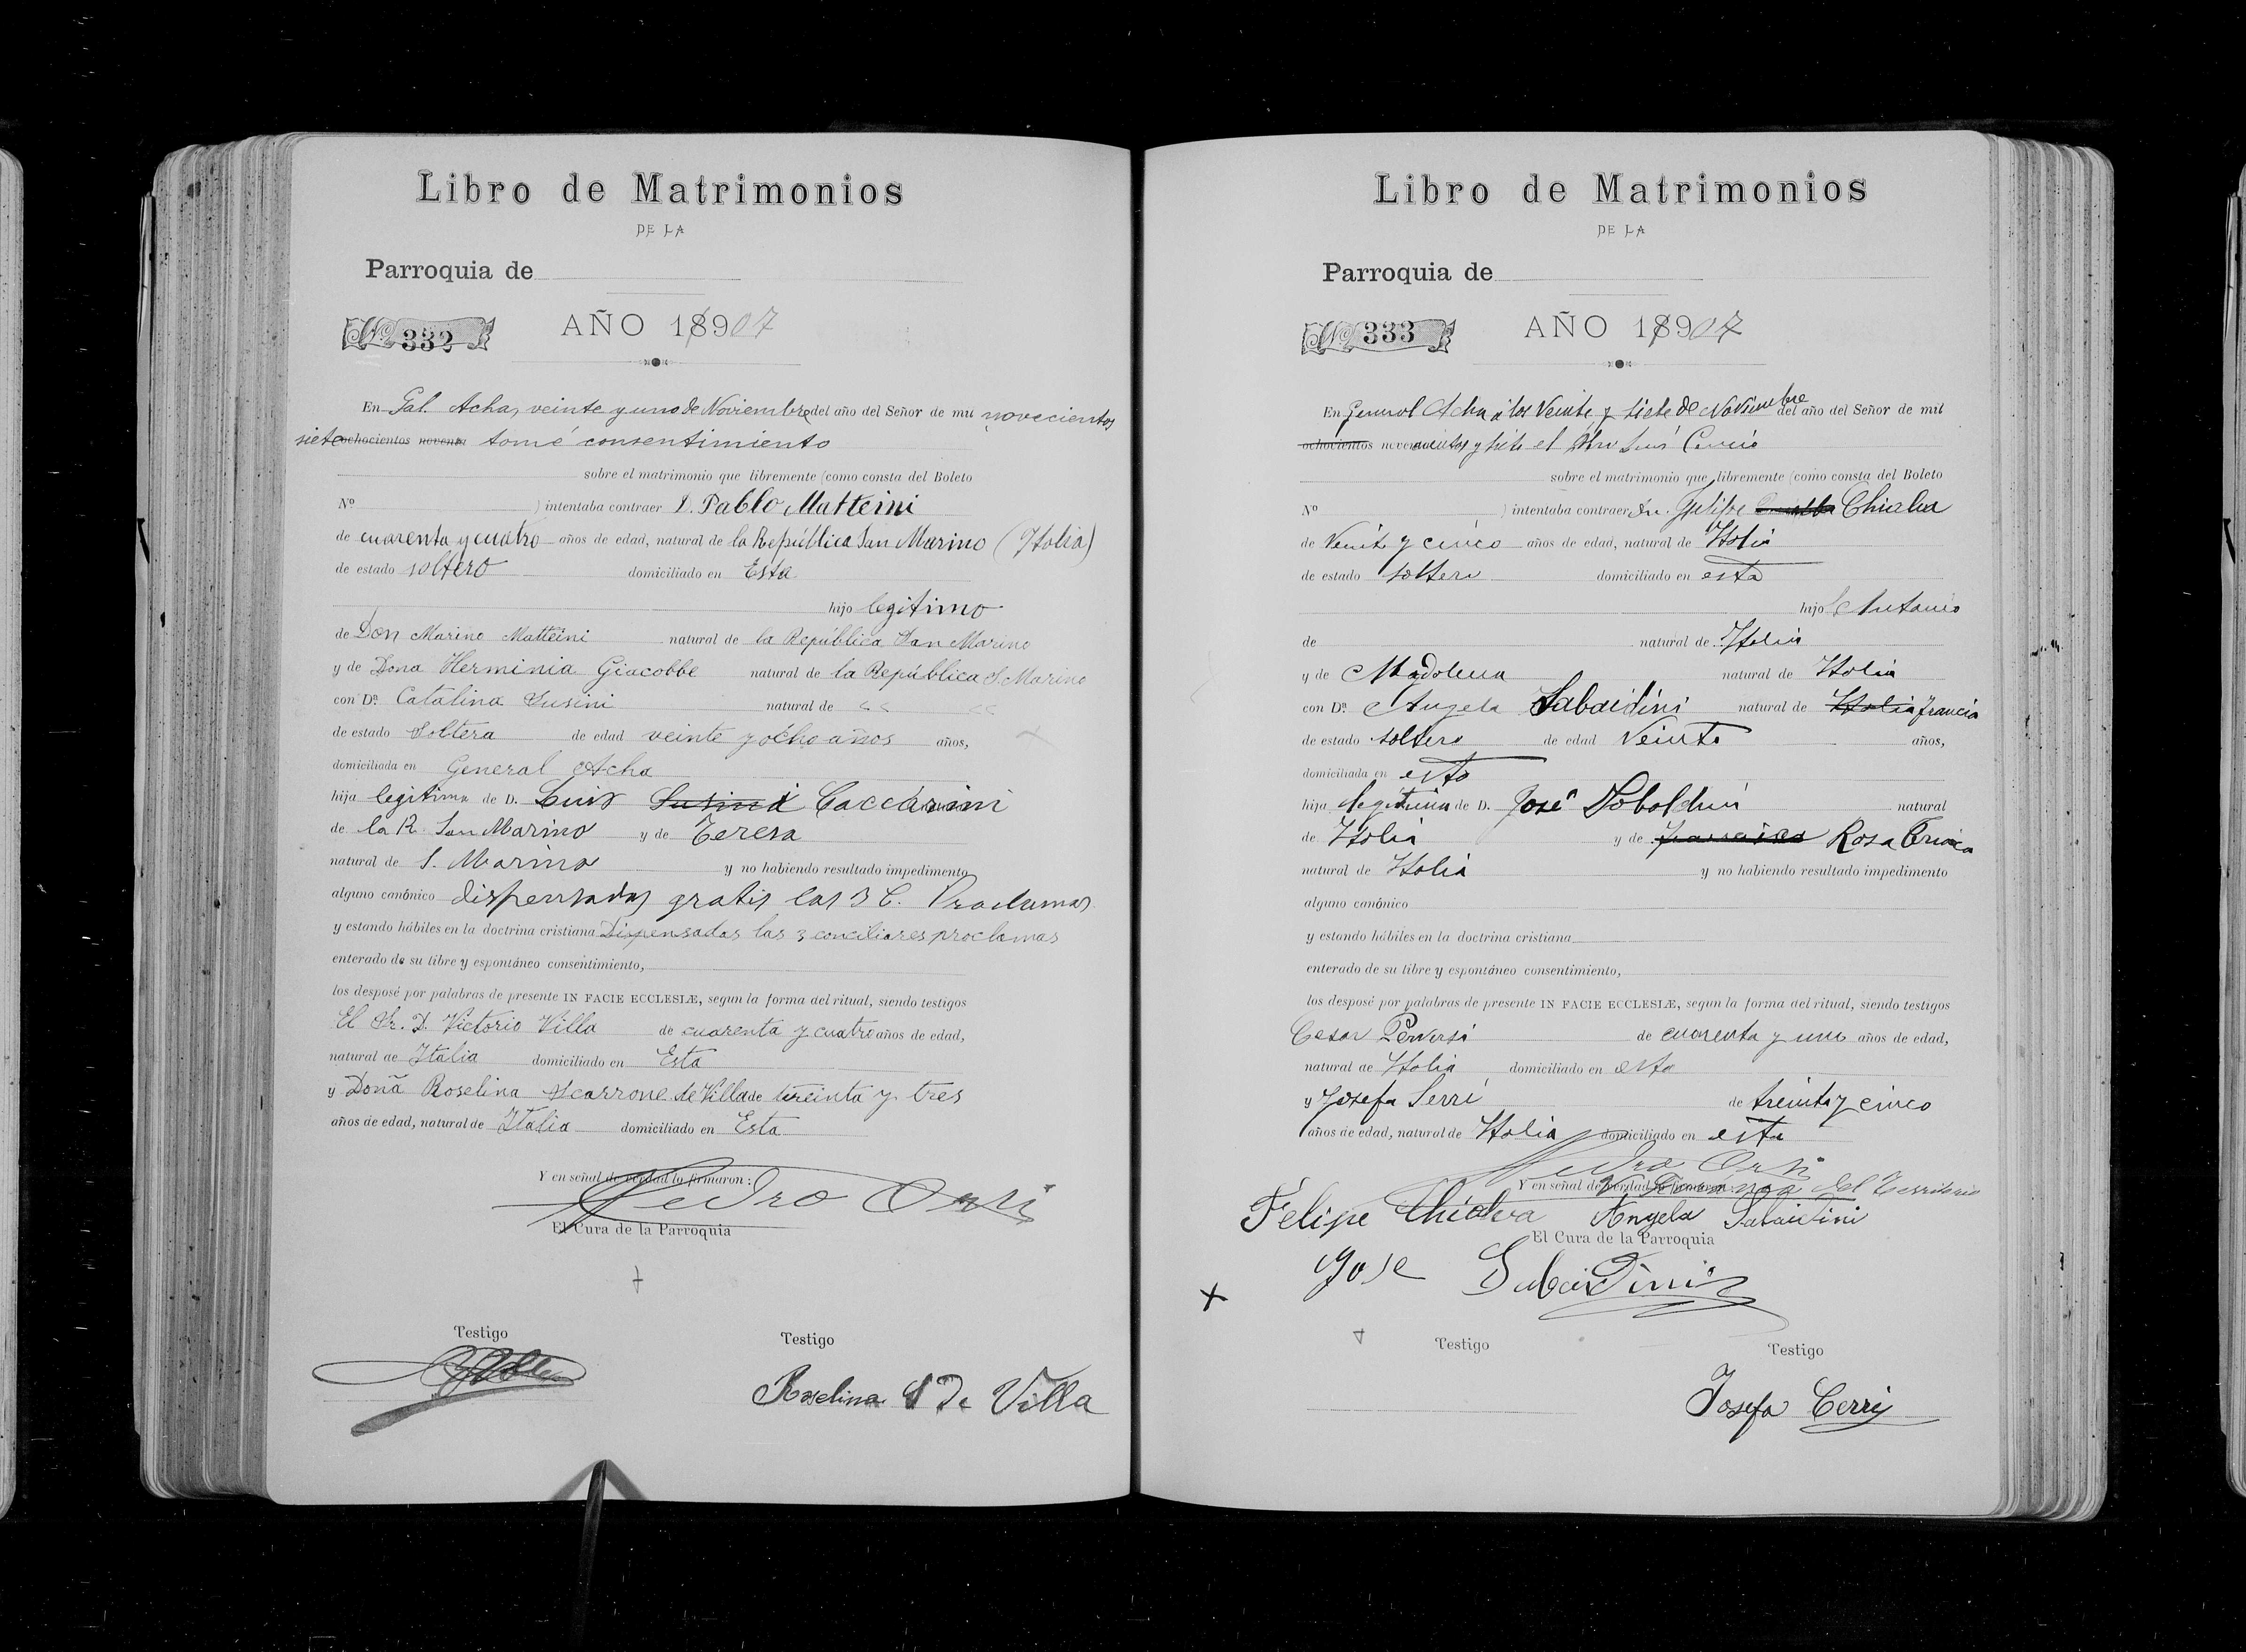 Libro de Matrimonios
DE LA
Parroquia de
Nº 332 AÑO 18907
En Gal. Acha, veinte y uno de Noviembre del año del Señor de mil novecientos
siete ochocientos noventa tomé consentimiento
sobre el matrimonio que libremente (como consta del Boleto
Nº ) intentaba contraer D. Pablo Matteini
de cuarenta y cuatro años de edad, natural de la República San Marino (Italia)
de estado soltero domiciliado en Esta
hijo legitimo
de Don Marino Matteini natural de la República San Marino
y de Dona Herminia Giacobbe natural de la República S. Marino
con Dª Catalina Susini natural de << <<
de estado Soltera de edad veinte y ocho años años,
domiciliada en General Acha
hija legitima de D. Luis Susini Caccarini
de la R. San Marino y de Teresa
natural de S. Marino y no habiendo resultado impedimento
alguno canónico dispensadas gratis las 3 C. Proclamas
y estando hábiles en la doctrina cristiana Dispensadas las 3 conciliares proclamas
enterado de su libre y espontáneo consentimiento,
los desposé por palabras de presente IN FACIE ECCLESIÆ, segun la forma del ritual, siendo testigos
El Sr. D. Victorio Villa de cuarenta y cuatro años de edad,
natural de Italia domiciliado en Esta
y Doña Roselina Scarrone de Villa de treinta y tres
años de edad, natural de Italia domiciliado en Esta
Y en señal de verdad lo firmaron:
Pedro Orsi
El Cura de la Parroquia
Testigo Testigo
Roselina S De Villa
Libro de Matrimonios
DE LA
Parroquia de
Nº 333 AÑO 18907
En General Acha á los Veinte y siete de Noviembre del año del Señor de mil
ochocientos novecientos y siete el Pbro Luis
sobre el matrimonio que libremente (como consta del Boleto
Nº ) intentaba contraer Dn. Felipe Chialva
de Veinte y cinco años de edad, natural de Italia
de estado soltero domiciliado en esta
hijo Antonio
de natural de Italia
y de Madalena natural de Italia
con Dª Angela Sabaidini natural de Italia Francia
de estado soltera de edad Veinte años,
domiciliada en esta
hija legitima de D. José natural
de Italia y de Rosa
natural de Italia y no habiendo resultado impedimento
alguno canónico
y estando hábiles en la doctrina cristiana
enterado de su libre y espontáneo consentimiento,
los desposé por palabras de presente IN FACIE ECCLESIÆ, segun la forma del ritual, siendo testigos
Cesar Perversi de cuarenta y uno años de edad,
natural de Italia domiciliado en esta
y Josefa Serri de treinta y cinco
años de edad, natural de Italia domiciliado en esta
Pedro Orsi
Y en señal de verdad lo firmaron: del Territorio
Felipe Chialva Angela Sabaidini
El Cura de la Parroquia
Jose Sabaidini
Testigo Testigo
Josefa Cerri